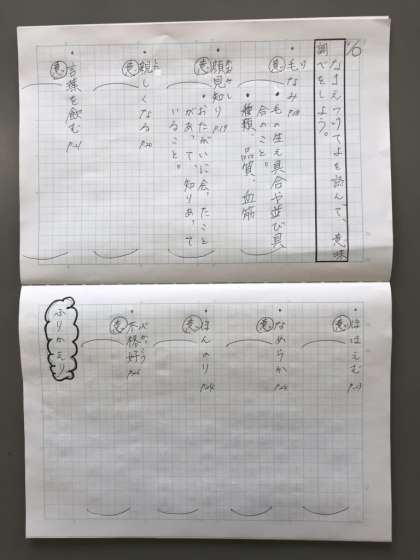 1/6
なまえつけてよを読んで、意味
調べをしよう。
・毛なみ P.18
意 ・毛の生え具合や並び具
合のこと。
・種類、品質、血筋
・顔見知り P.19
意 ・おたがいに会ったこと
があって、知りあって
いること。
・親しくなる P.20
意
・言葉を飲む P.21
意
・ほほえむ P.23
意
・なめらか P.24
意
・ほんのり P.24
意
・不格好 P.25
ぶかっこう
意
ふりかえり